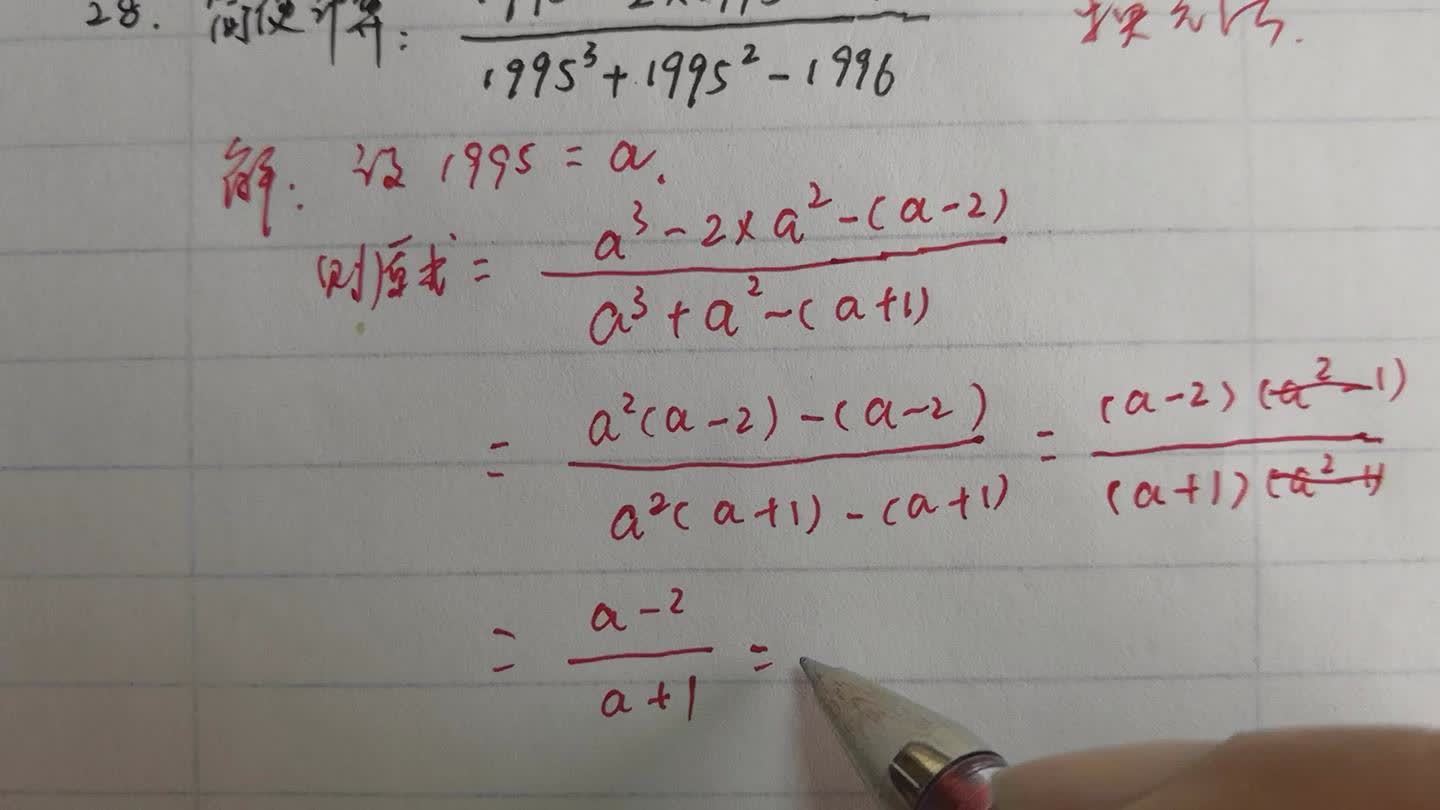 28. 简便计算:
1995³+1995²-1996
换元法.
解. 设 1995 = a.
则原式 = (a³-2×a²-(a-2))/(a³+a²-(a+1))
= (a²(a-2)-(a-2))/(a²(a+1)-(a+1)) = ((a-2)(a²-1))/((a+1)(a²-1))
= (a-2)/(a+1) =